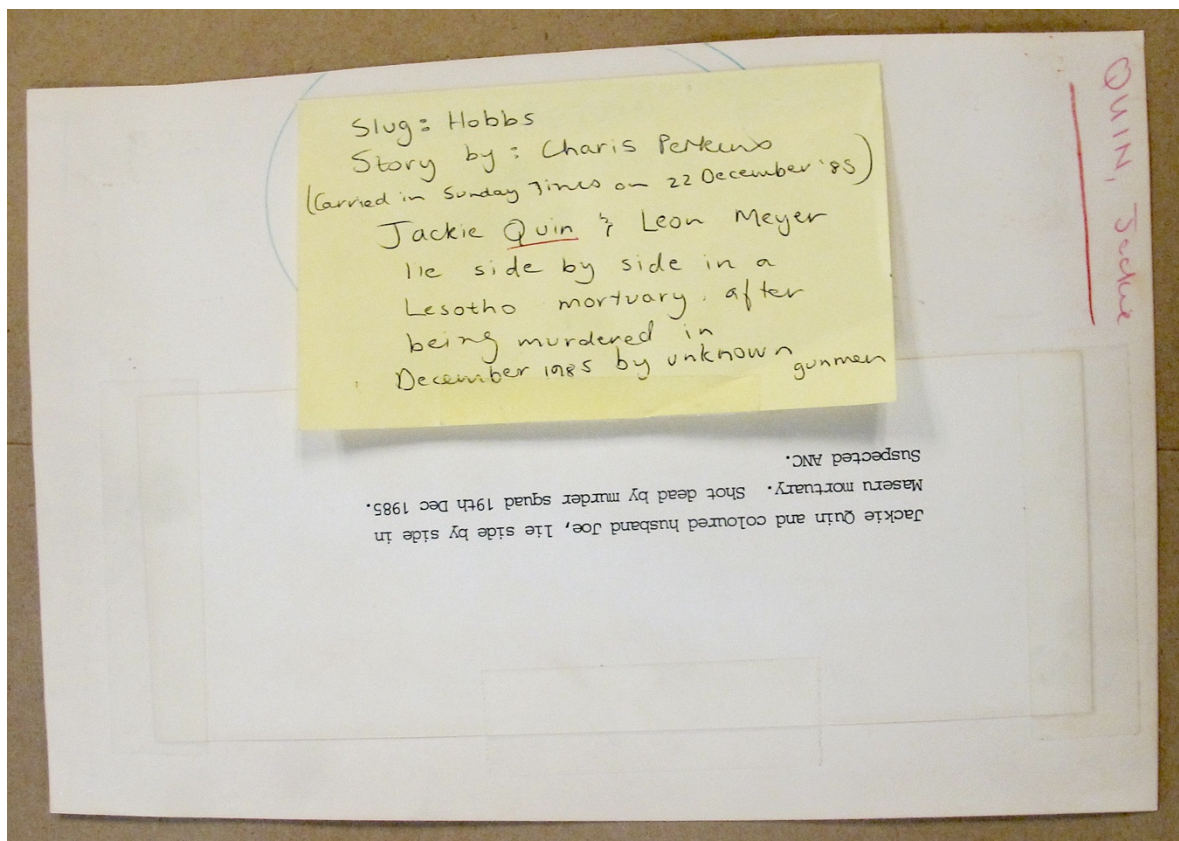 Slug: Hobbs
Story by: Charis Perkins
(Carried in Sunday Times on 22 December '85)
Jackie Quin & Leon Meyer
lie side by side in a
Lesotho mortuary. after
being murdered in
December 1985 by unknown gunmen
QUIN, Jackie
Jackie Quin and coloured husband Joe, lie side by side in
Maseru mortuary. Shot dead by murder squad 19th Dec 1985.
Suspected ANC.